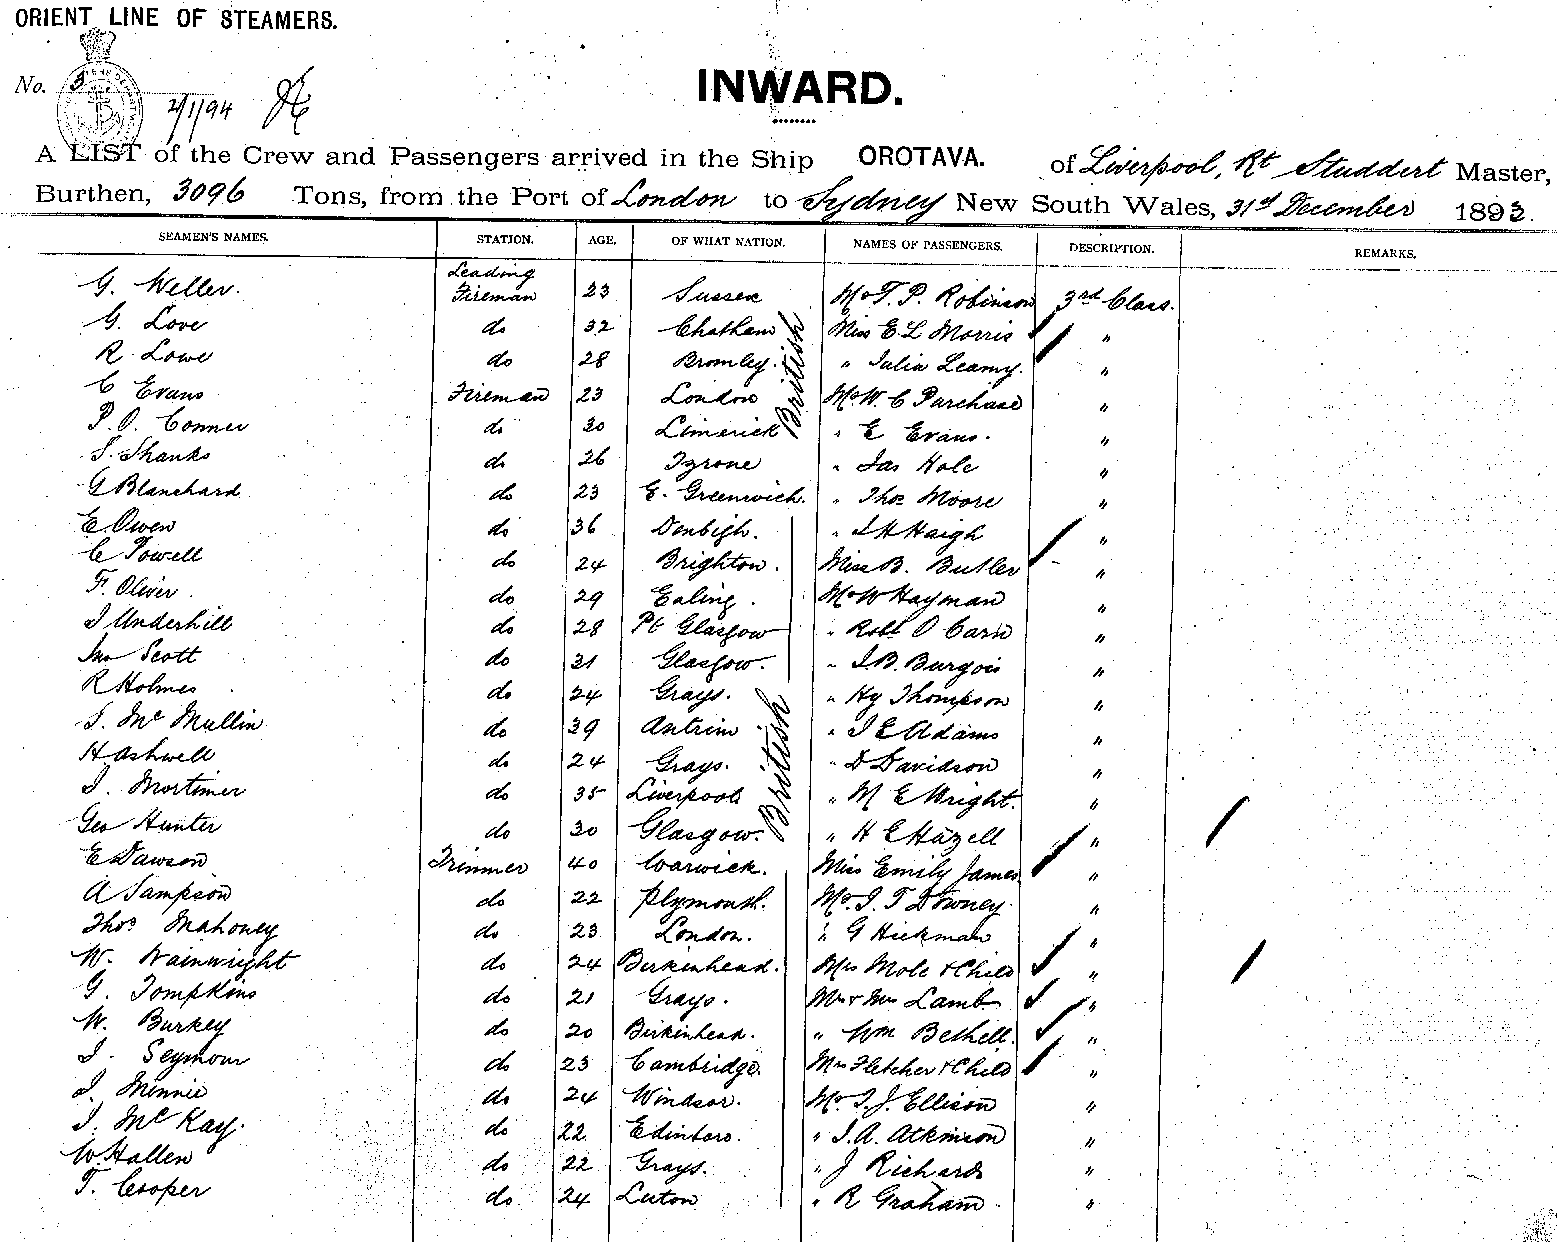 ORIENT LINE OF STEAMERS.
No. 5
2/1/94
INWARD.
A LIST of the Crew and Passengers arrived in the Ship OROTAVA. of Liverpool, Rt Studdert Master,
Burthen, 3096 Tons, from the Port of London to Sydney New South Wales, 31st December 1893.
SEAMEN'S NAMES. STATION. AGE. OF WHAT NATION. NAMES OF PASSENGERS. DESCRIPTION. REMARKS.
G. Weller. Leading Fireman 23 Sussex Mr T. P. Robinson 3rd Class.
G. Love do 32 Chatham Miss E L Morris "
R. Lowe do 28 Bromley. " Julia Leamy. "
C Evans Fireman 23 London Mr W. C Purchase "
P. O. Conner do 30 Limerick " E Evans. "
S. Shanks do 26 Tyrone " Jas Hole "
G Blanchard do 23 E. Greenwich. " Thos Moore "
E Owen do 36 Denbigh. " J H Haigh "
C Powell do 24 Brighton. Miss B. Butler "
F. Oliver do 29 Ealing. Mr W Hayman "
J Underhill do 28 Pt Glasgow " Robt O "
Jno Scott do 31 Glasgow. " J. B. Burgois "
R Holmes do 24 Grays. " Hy Thompson "
J. Mc Mullin do 39 Antrim " J E Adams "
H Ashwell do 24 Grays. " D Davidson "
J. Mortimer do 35 Liverpool " M E Wright. "
Geo Hunter do 30 Glasgow. " H E Hazell "
E Dawson Trimmer 40 Warwick. Miss Emily James "
A Sampson do 22 Plymouth. Mr. J. T Downey. "
Thos Mahoney do 23 London. " G Hickman "
W. Wainwright do 24 Birkenhead. Mrs Mole & Child "
G. Tompkins do 21 Grays. Mr & Mrs Lamb "
W. Burkey do 20 Birkenhead. " Wm Bethell. "
J. Seymour do 23 Cambridge. Mrs Fletcher & Child "
J. Minnie do 24 Windsor. Mr. J. J. Ellison "
J. Mc Kay. do 22 Edinboro. " J. A. Atkinson "
W Hallen do 22 Grays. " J Richards "
T. Cooper do 24 Luton " R Graham. "
British
British